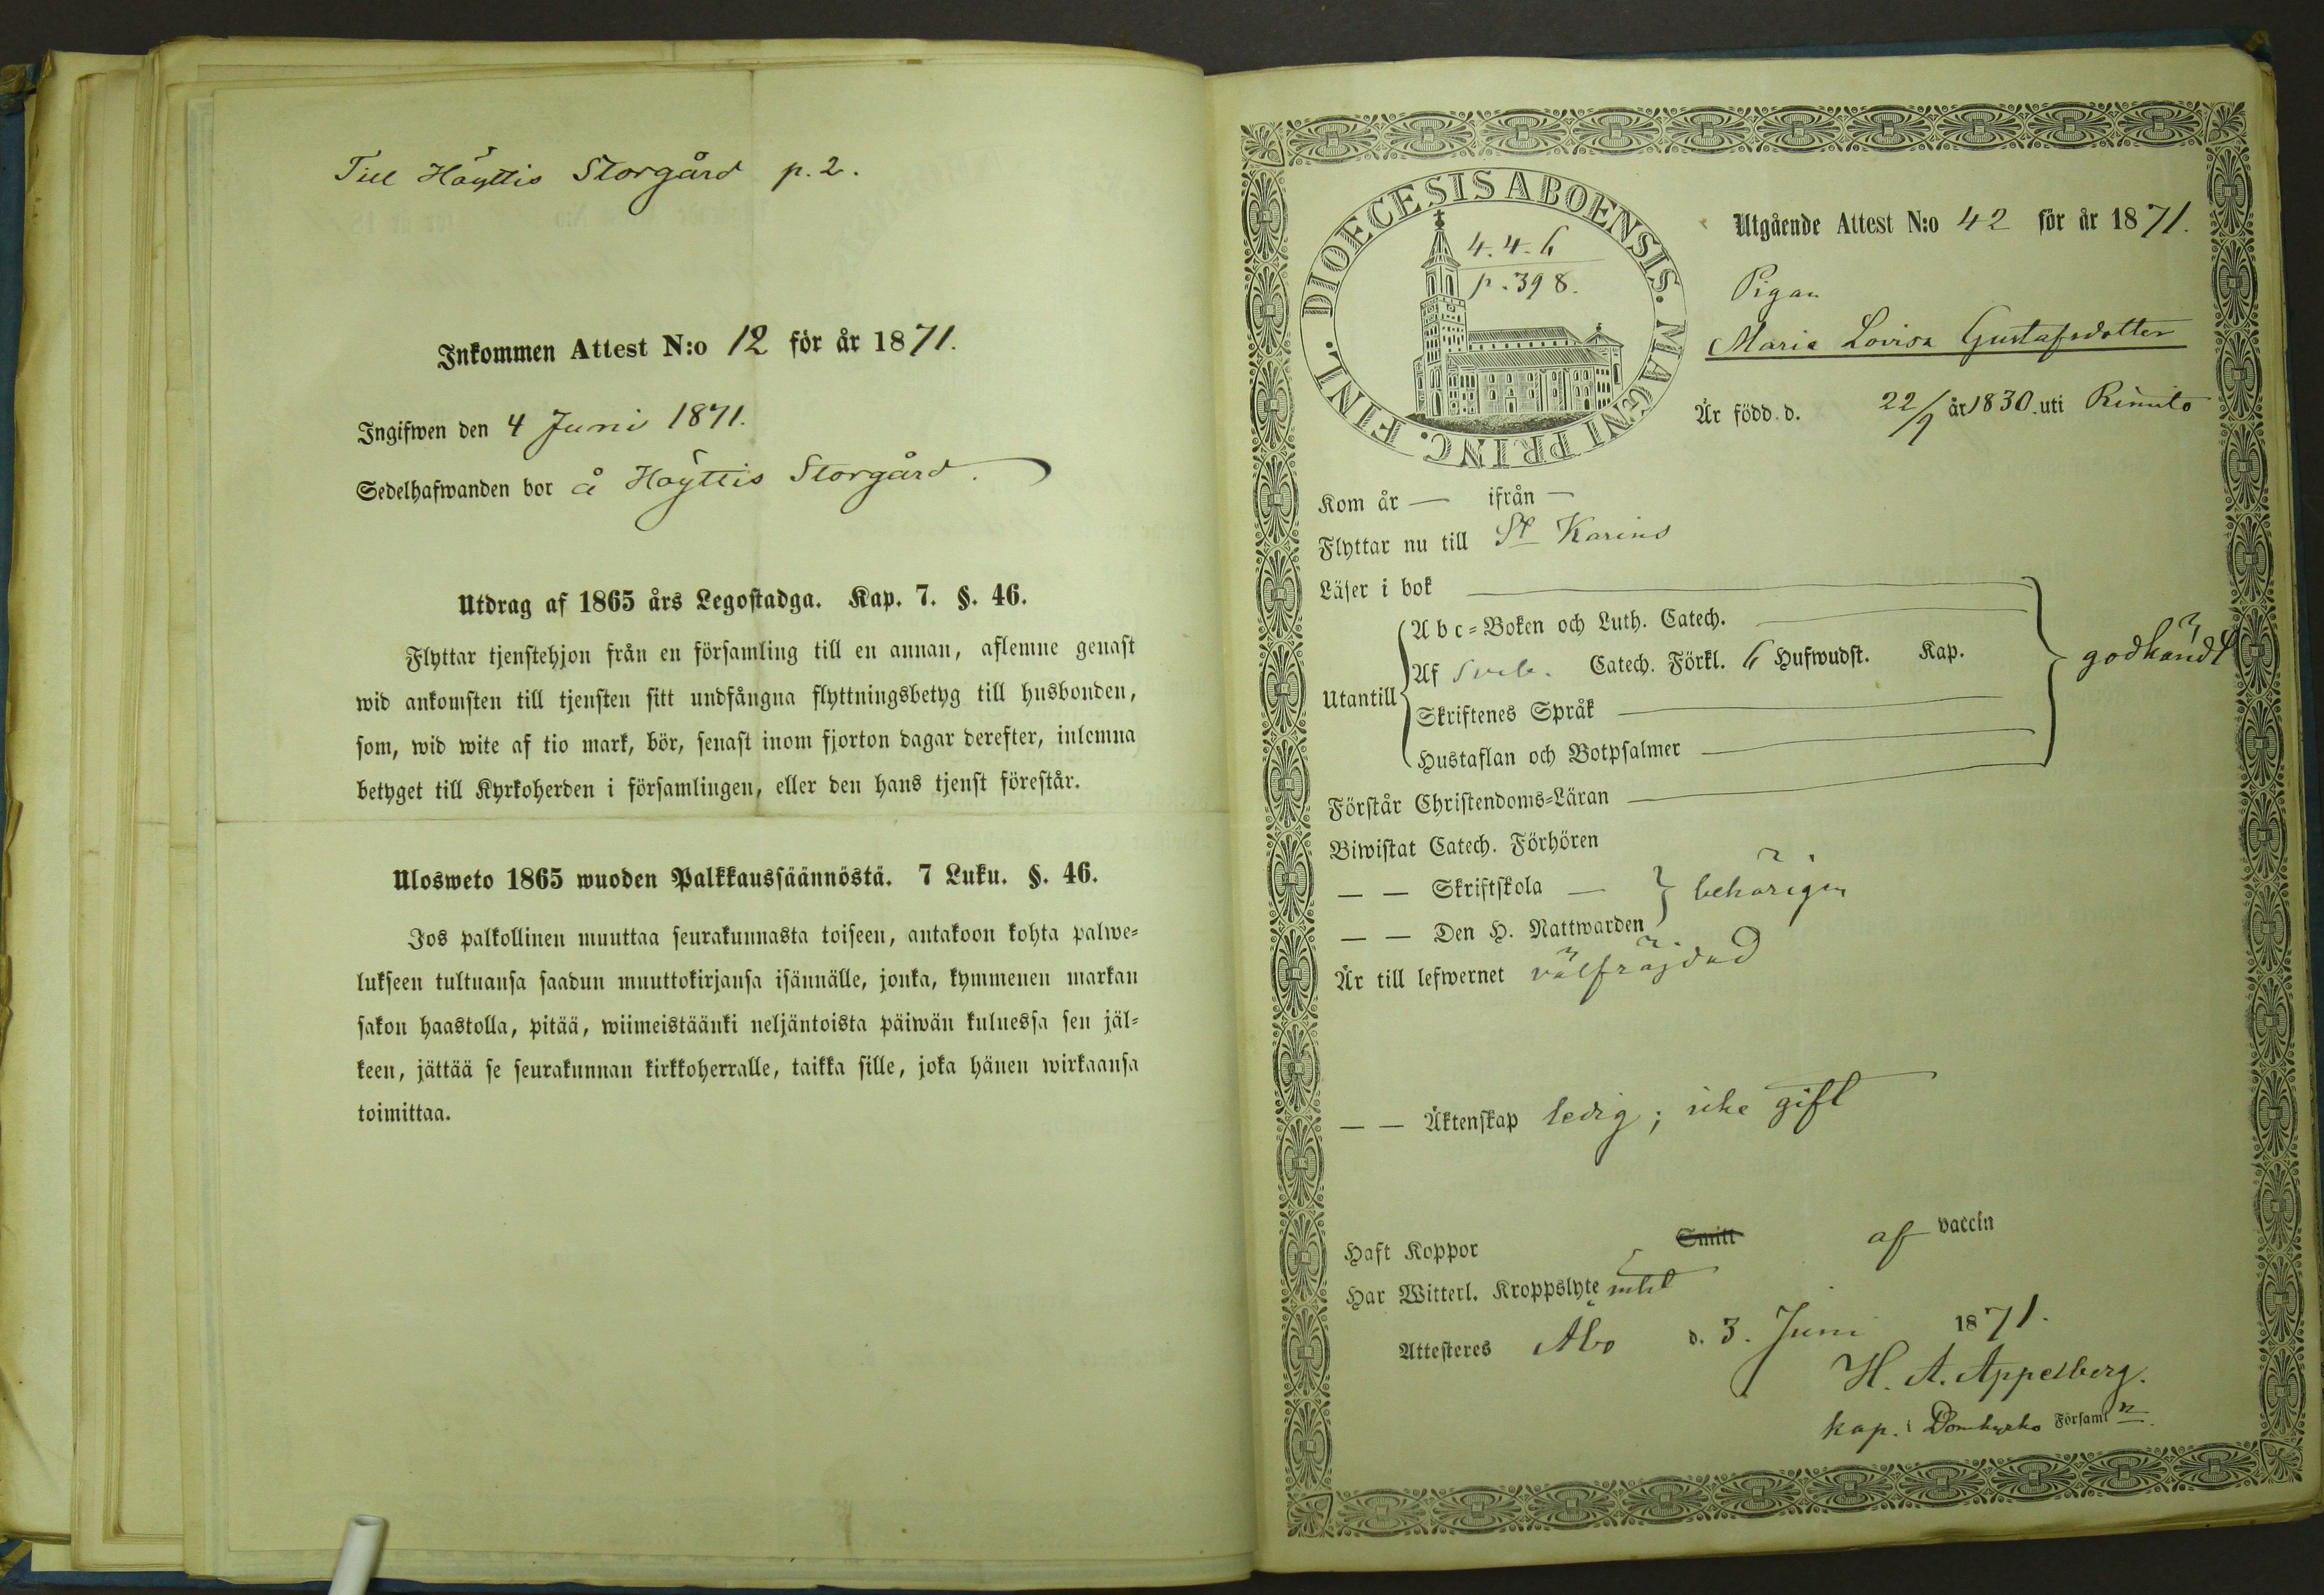 Till Höyttis Storgård p. 2.
Inkommen Attest N:o 12 för år 1871.
Ingifwen den 4 Juni 1871.
Sedelhafwanden bor å Höyttis Storgård.
Utdrag af 1865 års Legostadga. Kap. 7. §. 46.
Flyttar tjenstehjon från en församling till en annan, aflemne genast
wid ankomsten till tjensten sitt undfångna flyttningsbetyg till husbonden,
som, wid wite af tio mark, bör, senast inom fjorton dagar derefter, inlemna
betyget till Kyrkoherden i församlingen, eller den hans tjenst förestår.
Ulosweto 1865 wuoden Palkkaussäännöstä. 7 Luku. §. 46.
Jos palkollinen muuttaa seurakunnasta toiseen, antakoon kohta palwe=
lukseen tultuansa saadun muuttokirjansa isännälle, jonka, kymmenen markan
sakon haastolla, pitää, wiimeistäänki neljäntoista päiwän kuluessa sen jäl=
keen, jättää se seurakunnan kirkkoherralle, taikka sille, joka hänen wirkaansa
toimittaa.
DIOECESIS ABOENSIS. MAGNI PRINC. FINL.
4. 4. 6
p. 398.
Utgående Attest N:o 42 för år 1871.
Pigan
Maria Lovisa Gustafsdotter
Är född. d. 22/9 år 1830. uti Rimito
Kom år — ifrån —
Flyttar nu till St Karins
Läser i bok
Utantill
Abc=Boken och Luth. Catech.
Af Sveb. Catech. Förkl. 6 Hufwudst. Kap.
Skriftenes Språk
Hustaflan och Botpsalmer
godkändt
Förstår Christendoms=Läran
Biwistat Catech. Förhören
— — Skriftskola —
— — Den H. Nattwarden
behörigen
Är till lefwernet välfräjdad
— — Äktenskap ledig; icke gift
Haft Koppor Smitt af vaccin
Har Witterl. Kroppslyte intet
Attesteres Åbo d. 3. Juni 1871.
H. A. Appelberg.
kap. i Domkyrko Församln.